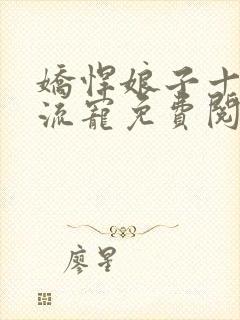 嬌悍娘子十
流寵免費閱
廖星